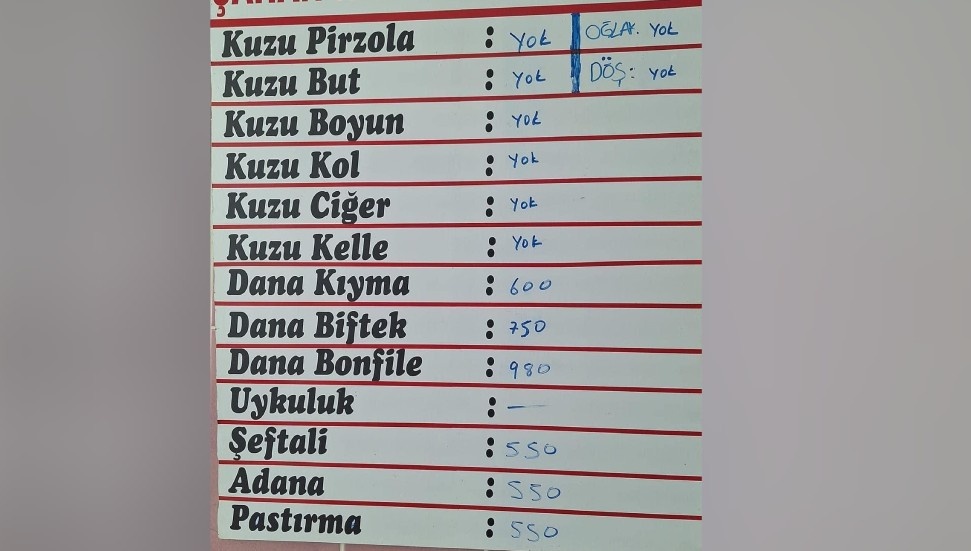 Kuzu Pirzola : YOK OĞLAK. YOK
Kuzu But : YOK DÖŞ: YOK
Kuzu Boyun : YOK
Kuzu Kol : YOK
Kuzu Ciğer : YOK
Kuzu Kelle : YOK
Dana Kıyma : 600
Dana Biftek : 750
Dana Bonfile : 980
Uykuluk : —
Şeftali : 550
Adana : 550
Pastırma : 550